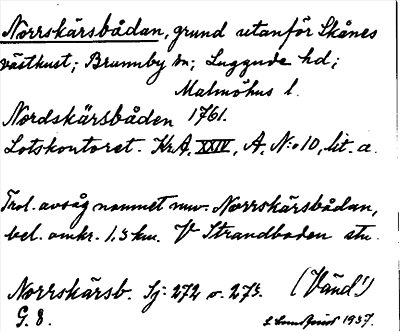 Norrskärsbådan, grund utanför Skånes
västkust; Brunnby sn; Luggude hd;
Malmöhus l.
Nordskärsbåden 1761.
Lotskontoret. KrA. XXIV, A. N:o 10, lit. a.
Trol. avsåg namnet nuv. Norrskärsbådan,
bel. omkr. 1.5 km. V Strandbaden stn.
Norrskärsb. Sj: 272 o. 273. (Vänd!)
G. 8. 1937.